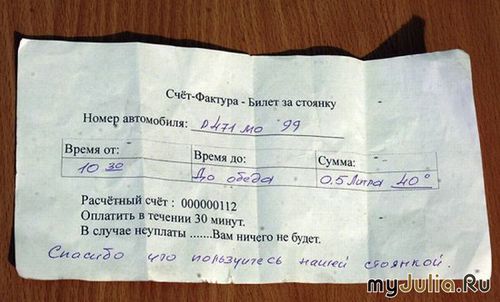 Счёт-Фактура - Билет за стоянку
Номер автомобиля: р 471 мо 99
Время от: Время до: Сумма:
10 30 До обеда 0.5 Литра 40°
Расчётный счёт : 000000112
Оплатить в течении 30 минут.
В случае неуплаты .......Вам ничего не будет.
Спасибо что пользуйтесь нашей стоянкой.
myJulia.Ru